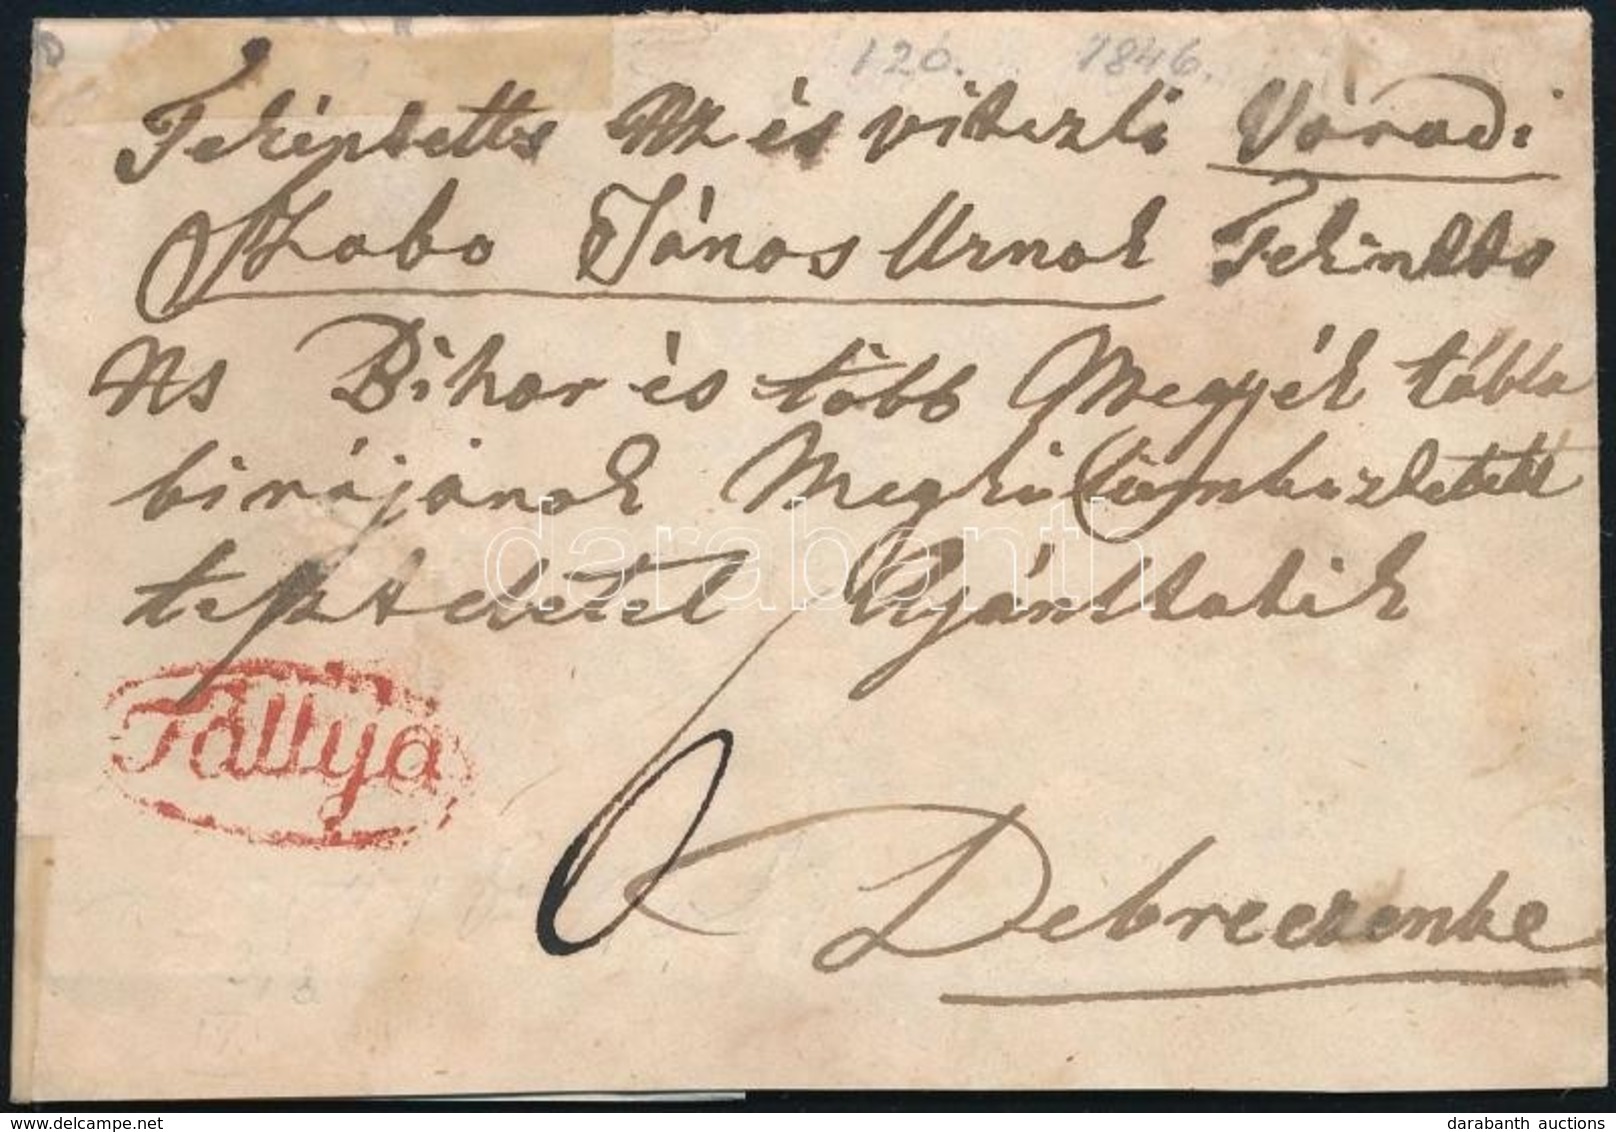 120. 1846.
Tekéntetts Nz és vitezlö Váradi
Szabo János Urnak Tekéntts
Ns Bihar és több Megyék tábla
birájának Megkülömbeztetett
tisztelettel Ajánltatik
Tállya
6
Debreczenbe
darabanth
www.delcampe.net
darabanth auctions